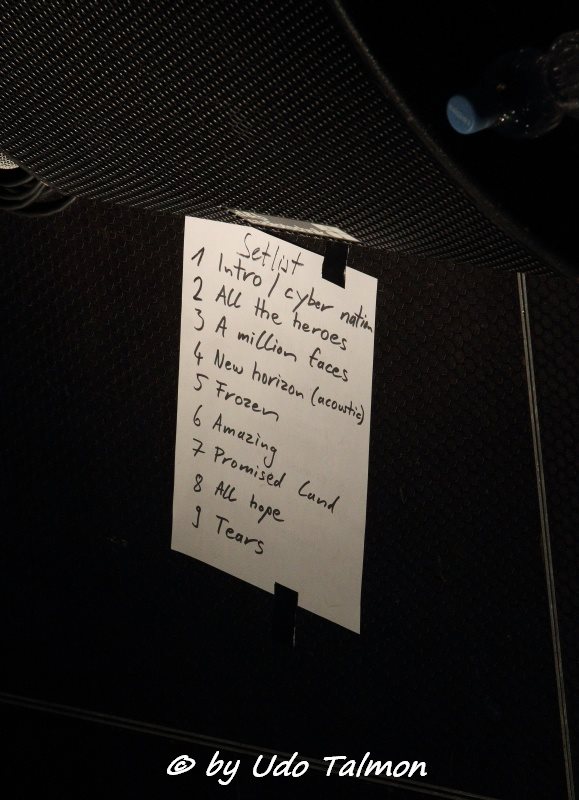 Setlist
1 Intro / cyber nation
2 All the heroes
3 A million faces
4 New horizon (acoustic)
5 Frozen
6 Amazing
7 Promised Land
8 All hope
9 Tears
© by Udo Talmon